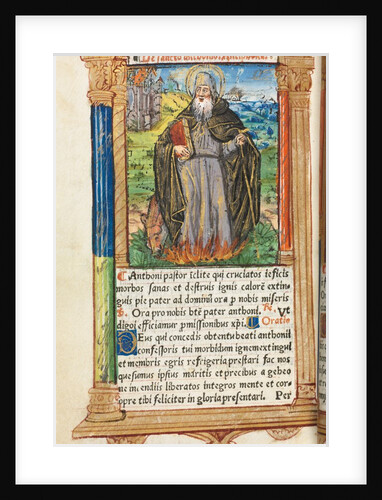 De sancto anthonio
Anthoni pastor iclite qui cruciatos reficis
morbos sanas et destruis ignis calorē extin
guis pie pater ad dominū ora p nobis miseris
Ora pro nobis btē pater anthoni. ℟. Vt
digni efficiamur pmissionibus xpi. Oratio
Deus qui concedis obtentu beati anthonii
confessoris tui morbidum ignem extingui
et membris egris refrigeria prestari fac nos
quesumus ipsius meritis et precibus a gehen
ne incendiis liberatos integros mente et cor
pore tibi feliciter in gloria presentari. Per